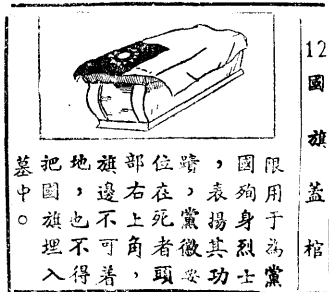 12
國旗蓋棺
限用于為黨
國殉身烈士
，表揚其功
蹟，黨徽安
位在死者頭
部右上角，
旗邊不可着
地，也不得
把國旗埋入
墓中。